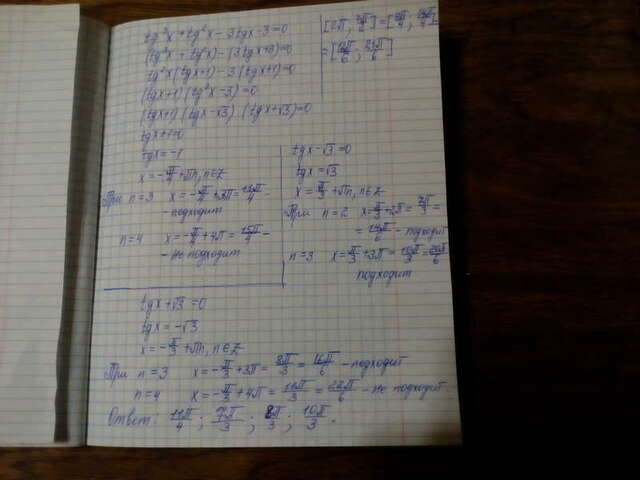 tg³x + tg²x - 3tgx - 3 = 0
(tg³x + tg²x) - (3tgx + 3) = 0
tg²x(tgx+1) - 3(tgx+1) = 0
(tgx+1)(tg²x-3) = 0
(tgx+1)(tgx-√3)(tgx+√3) = 0
tgx+1=0
tgx = -1
x = -π/4 + πn, n∈Z
При n = 3 x = -π/4 + 3π = 11π/4 -
- подходит
n = 4 x = -π/4 + 4π = 15π/4 -
- не подходит
tgx - √3 = 0
tgx = √3
x = π/3 + πn, n∈Z
При n = 2 x = π/3 + 2π = 7π/3 =
= 14π/6 - подходит
n = 3 x = π/3 + 3π = 10π/3 = 20π/6
подходит
tgx + √3 = 0
tgx = -√3
x = -π/3 + πn, n∈Z
При n = 3 x = -π/3 + 3π = 8π/3 = 16π/6 - подходит
n = 4 x = -π/3 + 4π = 11π/3 = 22π/6 - не подходит
Ответ: 11π/4 ; 7π/3 ; 8π/3 ; 10π/3 .